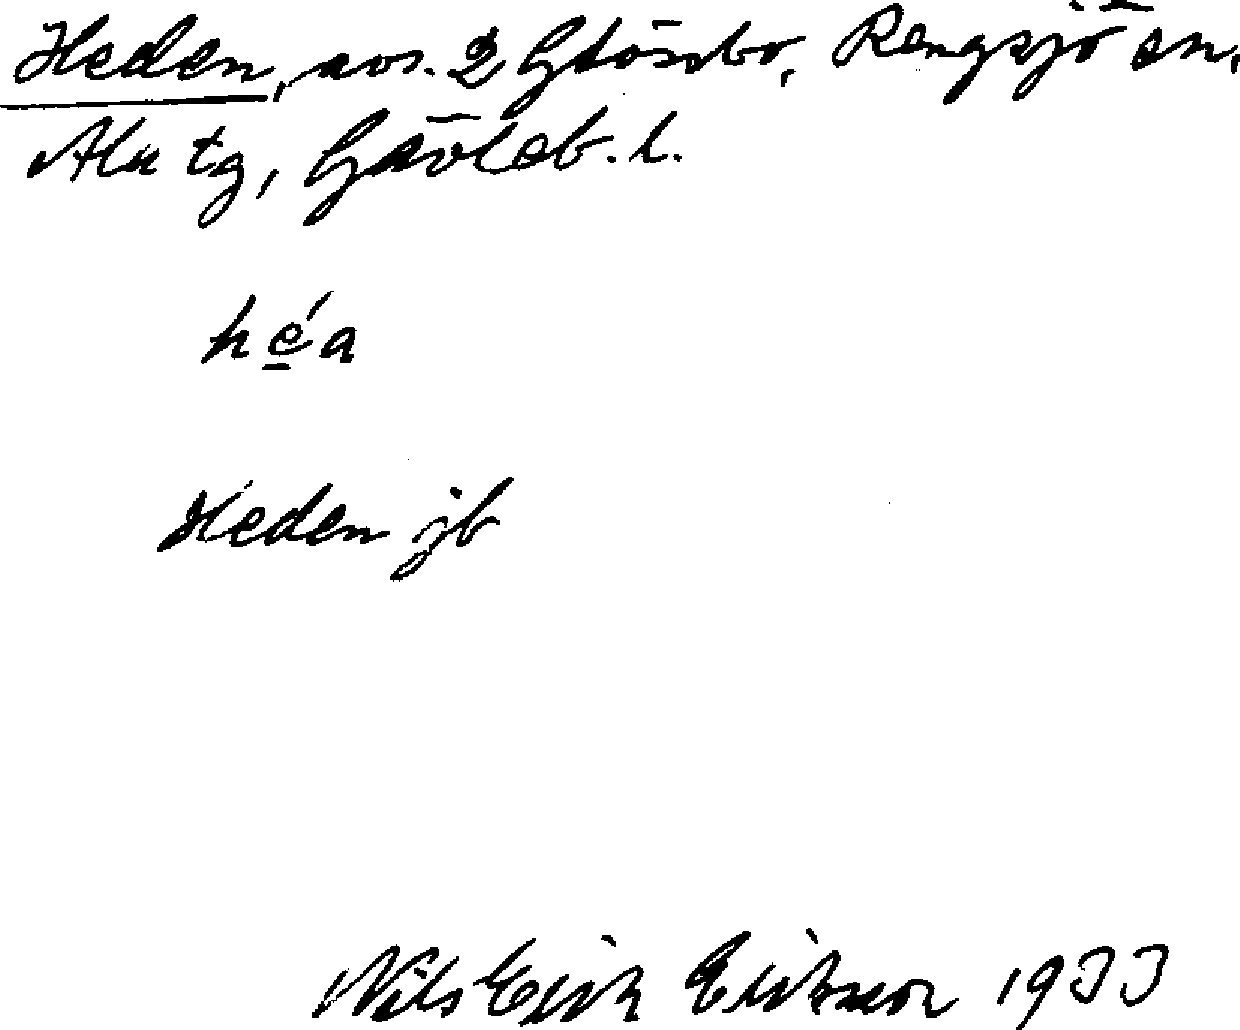 Heden, avs. 2 Glösbo, Rengsjö sn,
Ala tg, Gävleb. l.
he̲´a
Heden jb
Nils Erik Erikson 1933